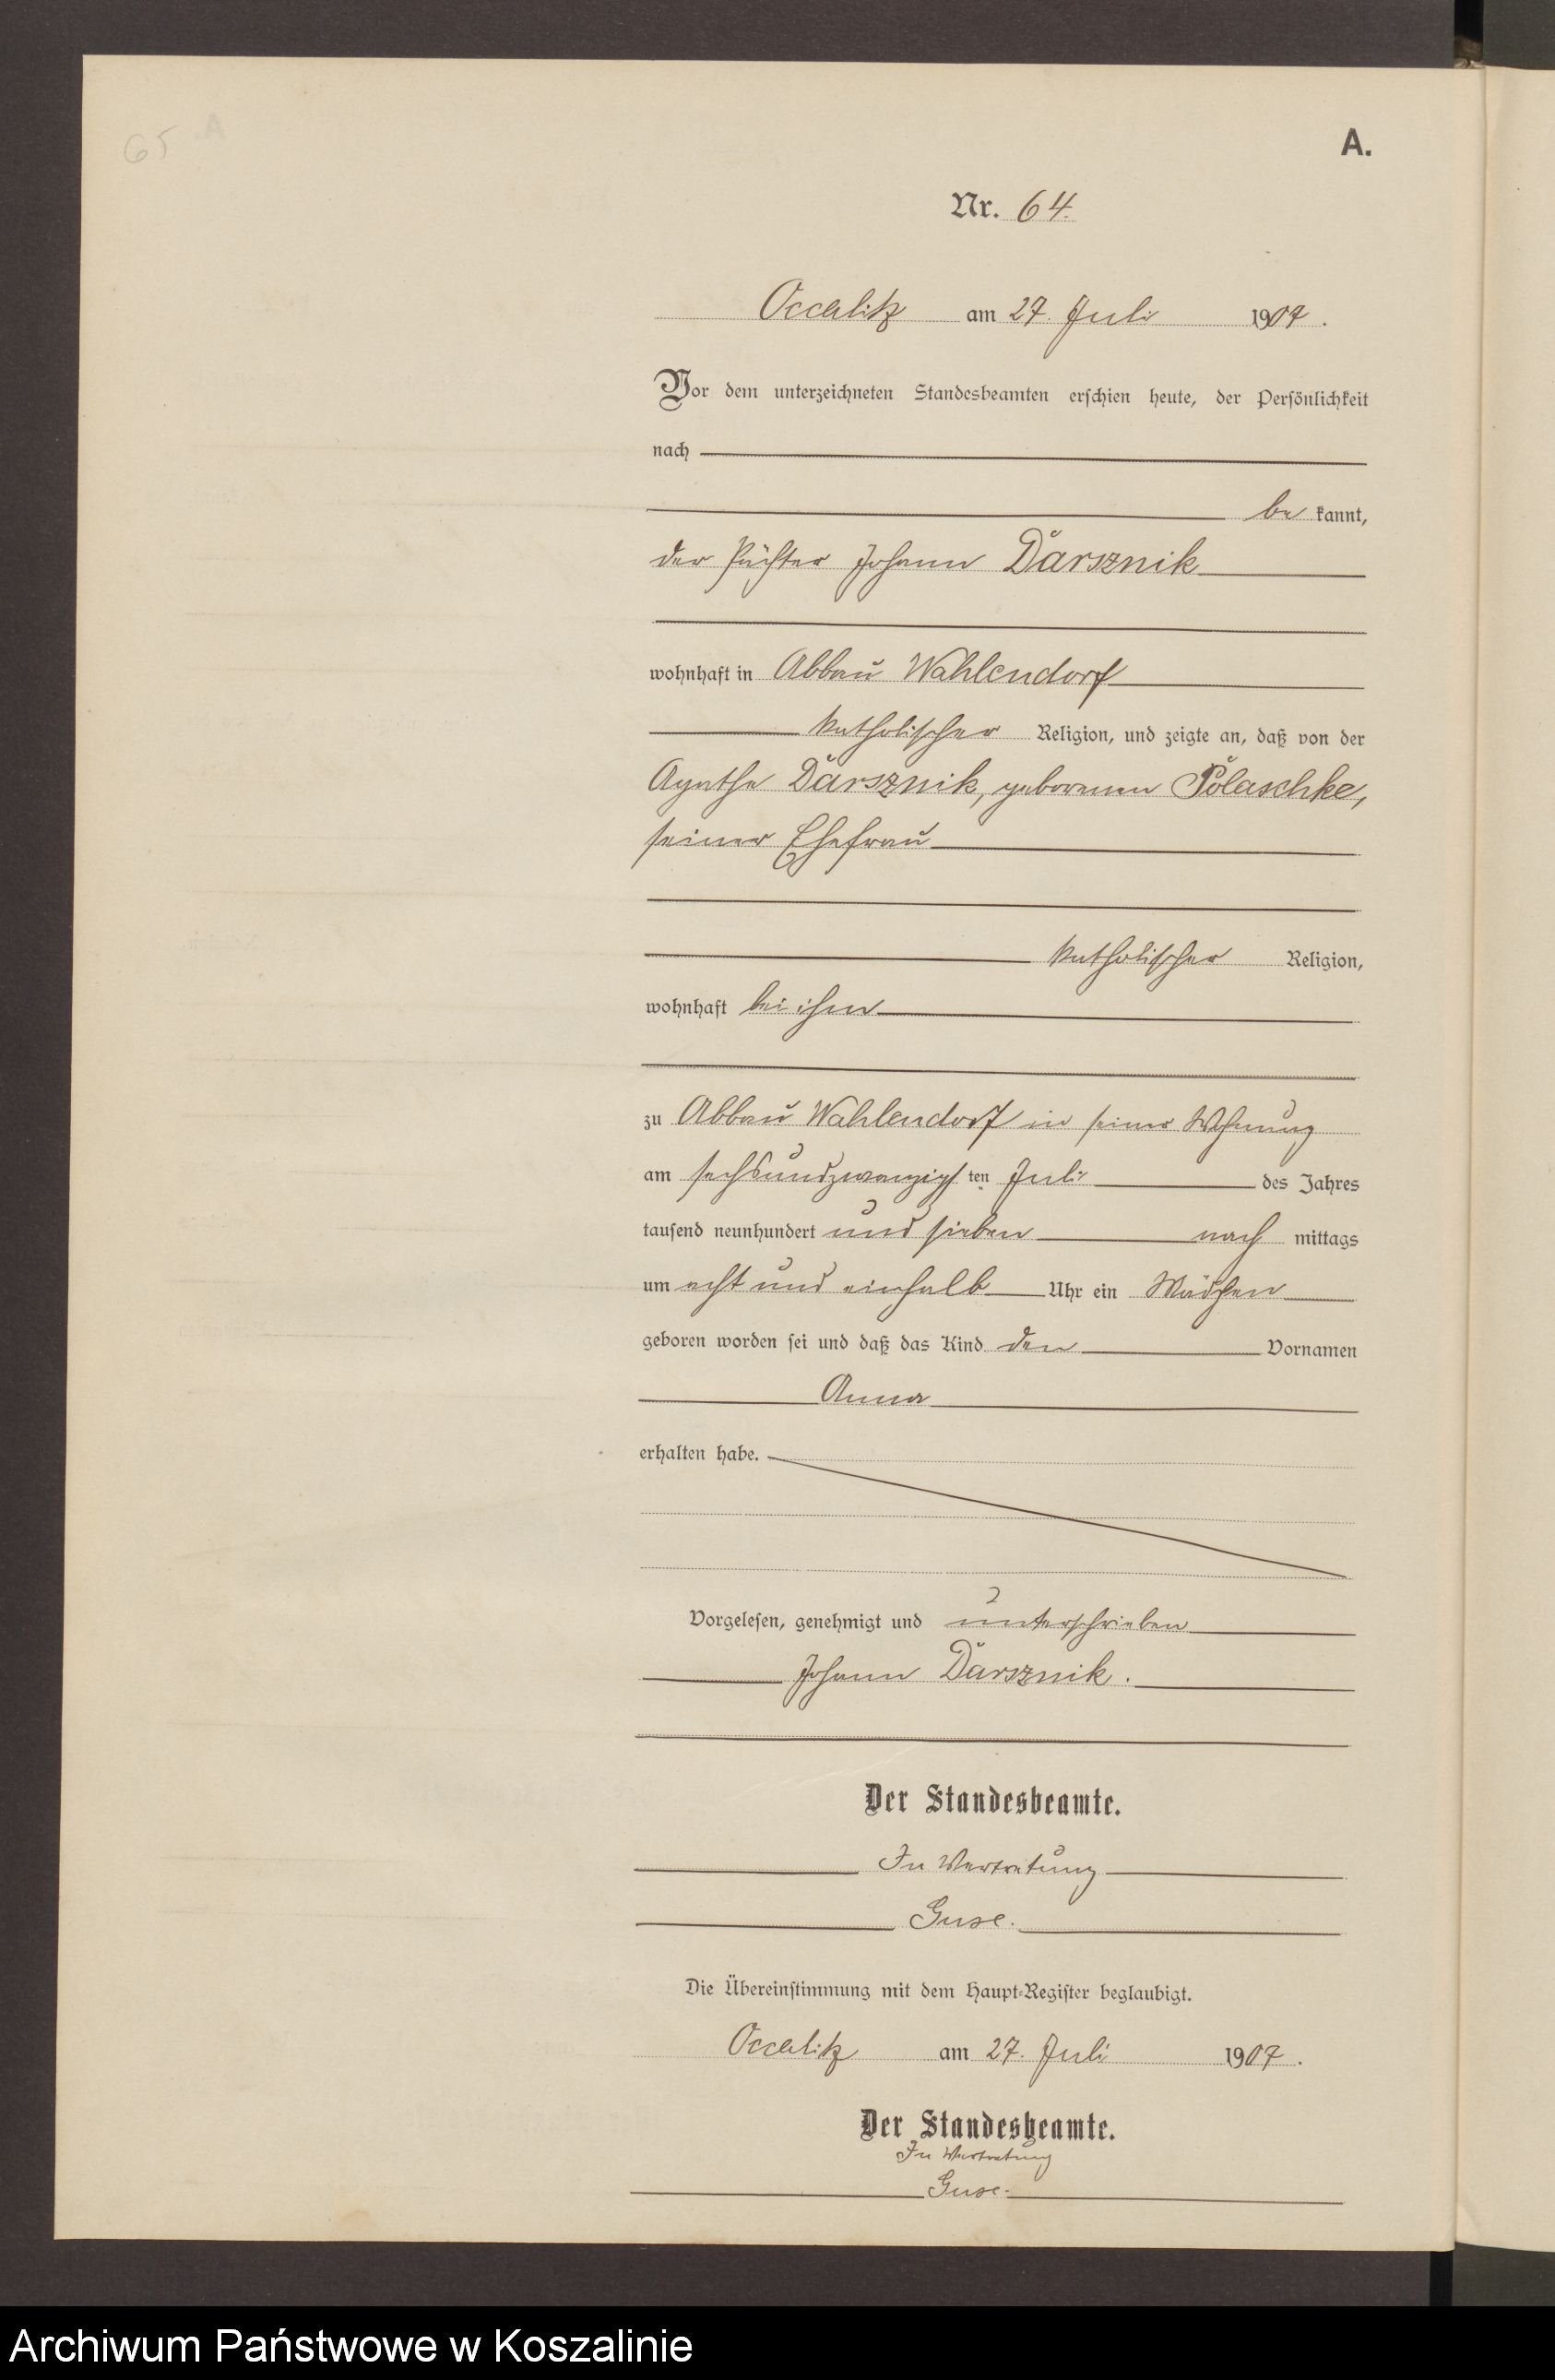 65 A
A.
Nr. 64.
Occalitz am 27. Juli 1907.
Vor dem unterzeichneten Standesbeamten erschien heute, der Persönlichkeit
nach
be kannt,
der Pächter Johann Darsznik
wohnhaft in Abbau Wahlendorf
katholischer Religion, und zeigte an, daß von der
Agathe Darsznik, geborenen Polaschke,
seiner Ehefrau
katholischer Religion,
wohnhaft bei ihm
zu Abbau Wahlendorf in seiner Wohnung
am sechsundzwanzigsten Juli des Jahres
tausend neunhundert und sieben nach mittags
um acht und einhalb Uhr ein Mädchen
geboren worden sei und daß das Kind den Vornamen
Anna
erhalten habe.
Vorgelesen, genehmigt und unterschrieben
Johann Darsznik.
Der Standesbeamte.
In Vertretung
Guse.
Die Übereinstimmung mit dem Haupt-Register beglaubigt.
Occalitz am 27. Juli 1907.
Der Standesbeamte.
In Vertretung
Guse.
Archiwum Państwowe w Koszalinie